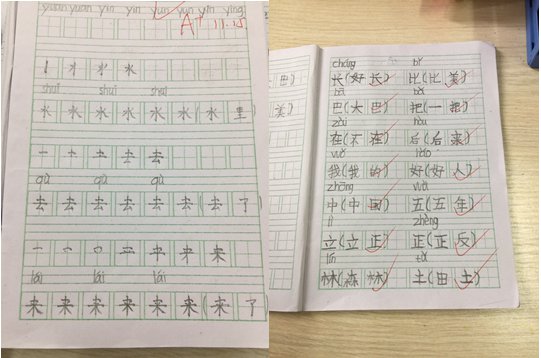 yuan yuan yin yin yun yun yin ying
A+ 11.15
水
shuǐ shuǐ shuǐ
水 水 水 水 水 水 (水 里
去
qù qù qù
去 去 去 去 去 去 (去 了
来
lái lái lái
来 来 来 来 来 来 (来 了
巴)
美)
cháng bǐ
长(好 长) 比(比 美)
bā bǎ
巴(大 巴) 把(一 把)
zài hòu
在(不 在) 后(后 来)
wǒ hǎo
我(我 的) 好(好 人)
zhōng wǔ
中(中 国) 五(五 年)
lì zhèng
立(立 正) 正(正 反)
lín tǔ
林(森 林) 土(田 土)